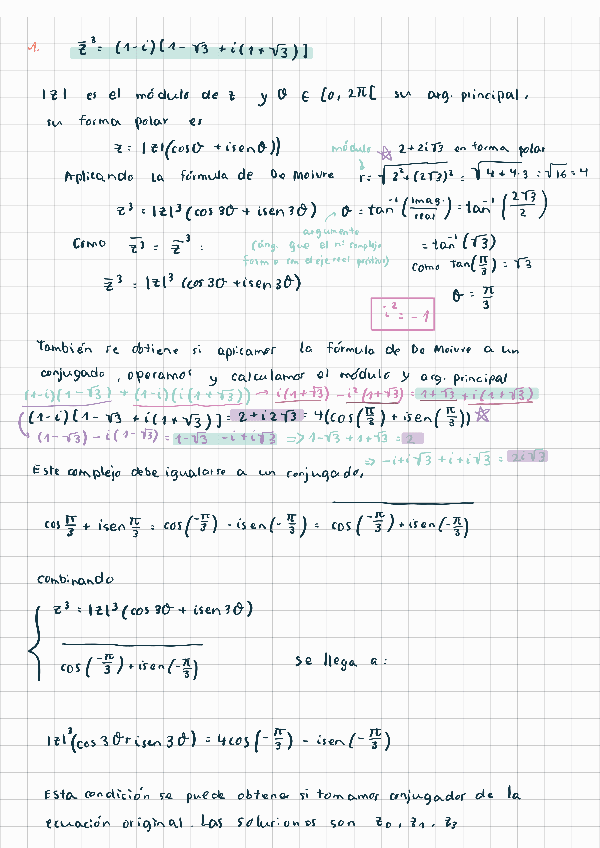 1. z̄³ = (1-i)[1-√3 + i(1+√3)]
|z| es el módulo de z y θ ∈ [0, 2π[ su arg. principal,
su forma polar es
z = |z|(cosθ + isenθ))
módulo ☆ 2+2i√3 en forma polar
Aplicando la fórmula de De Moivre r = √(2²+(2√3)²) = √(4+4·3) = √16 = 4
z³ = |z|³(cos 3θ + isen 3θ) θ = tan⁻¹(imag./real) = tan⁻¹(2√3/2)
argumento
(áng. que el nº complejo
forma con el eje real positivo)
Como z̄³ = z̄³ : = tan⁻¹(√3)
como tan(π/3) = √3
z̄³ = |z|³ (cos 3θ + isen 3θ)
θ = π/3
i² = -1
También se obtiene si aplicamos la fórmula de De Moivre a un
conjugado, operamos y calculamos el módulo y arg. principal
(1-i)(1-√3) + (1-i)(i(1+√3)) → i(1+√3) - i²(1+√3) = 1+√3 + i(1+√3)
(1-i)[1-√3 + i(1+√3)] = 2+i2√3 = 4(cos(π/3) + isen(π/3)) ☆
(1-√3) - i(1-√3) = 1-√3 -i+i√3 => 1-√3 + 1+√3 = 2
=> -i+i√3 + i+i√3 = 2i√3
Este complejo debe igualarse a un conjugado,
cos π/3 + isen π/3 = cos(-π/3) - isen(-π/3) = cos(-π/3) + isen(-π/3)
combinando
z³ = |z|³(cos 3θ + isen 3θ)
cos(-π/3) + isen(-π/3)
se llega a:
|z|³(cos 3θ + isen 3θ) = 4cos(-π/3) - isen(-π/3)
Esta condición se puede obtener si tomamos conjugador de la
ecuación original. Las soluciones son z₀, z₁, z₃